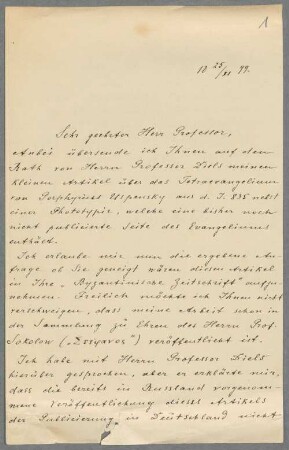 1
18 25/XI 99.
Sehr geehrter Herr Professor,
Anbei übersende ich Ihnen auf den
Rath von Herrn Professor Diels meinen
kleinen Artikel über das Tetraevangelium
von Porphyrius Uspensky aus d. J. 835 nebst
einer Phototypie, welche eine bisher noch
nicht publicierte Seite des Evangeliums
enthält.
Ich erlaube mir nun die ergebene An-
frage ob Sie geneigt wären diesen Artikel
in Ihre „Byzantinische Zeitschrift" aufzu-
nehmen. Freilich möchte ich Ihnen nicht
verschweigen, dass meine Arbeit schon in
der Sammlung zu Ehren des Herrn Prof.
Sokolow veröffentlicht ist.
Ich habe mit Herrn Professor Diels
hierüber gesprochen, aber er erklärte mir,
dass die bereits in Russland vorgenom-
mene Veröffentlichung dieses Artikels
der Publicierung in Deutschland nicht